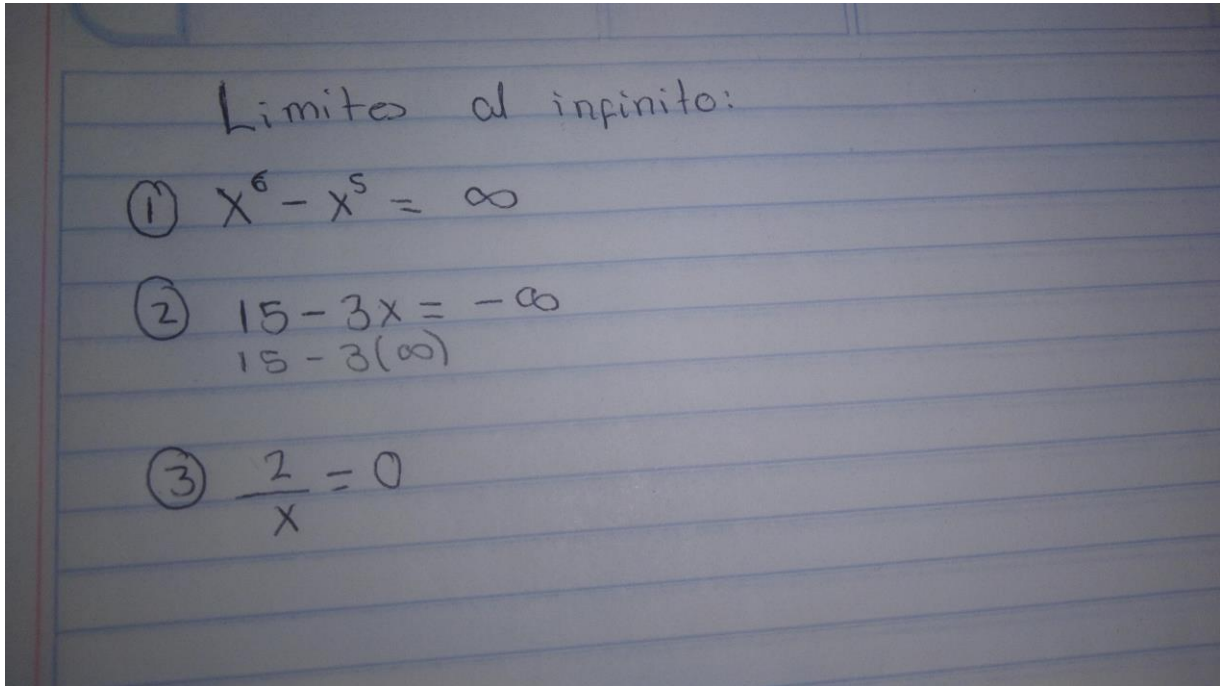 Limites al infinito:
① x⁶ - x⁵ = ∞
② 15 - 3x = -∞
15 - 3(∞)
③ 2/x = 0